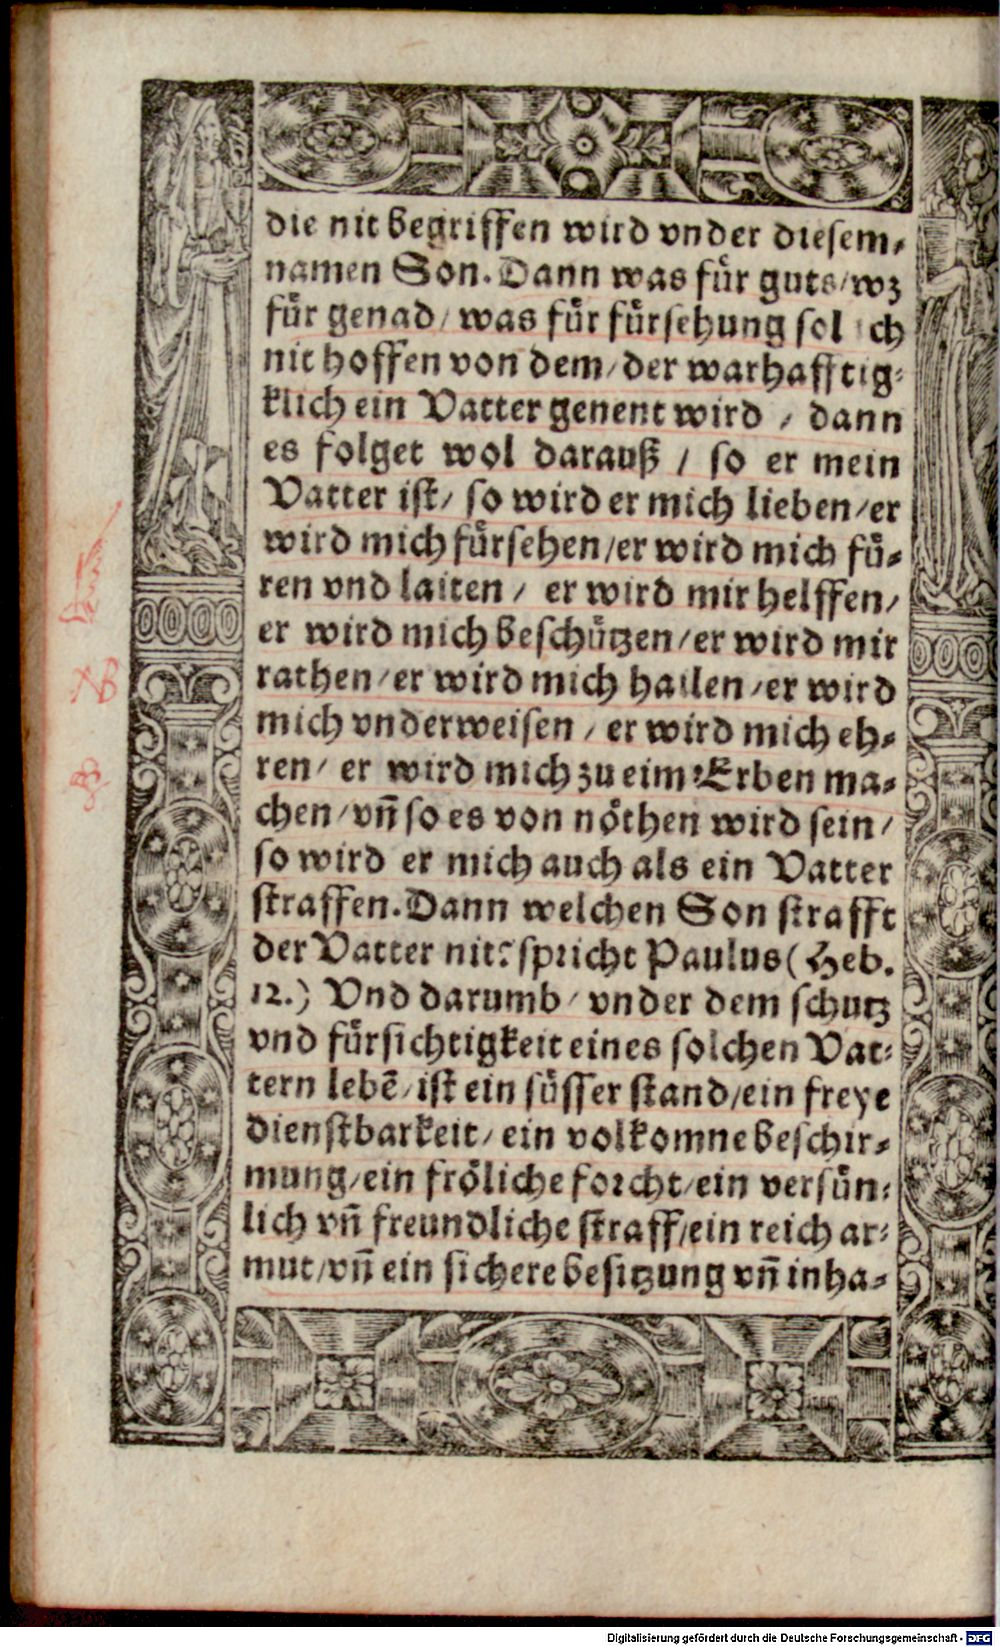 die nit begriffen wird vnder diesem,
namen Son. Dann was fuͤr guts/wz
fuͤr genad/ was fuͤr fuͤrsehung sol ich
nit hoffen von dem/der warhafftig-
klich ein Vatter genent wird / dann
es folget wol darauß / so er mein
Vatter ist/ so wird er mich lieben/er
wird mich fuͤrsehen/er wird mich fuͤ-
ren vnd laiten / er wird mir helffen/
er wird mich beschuͤtzen/er wird mir
rathen/er wird mich hailen/er wird
mich vnderweisen / er wird mich eh-
ren/ er wird mich zu eim Erben ma-
chen/vñ so es von noͤthen wird sein/
so wird er mich auch als ein Vatter
straffen. Dann welchen Son strafft
der Vatter nit? spricht Paulus (Heb.
12.) Vnd darumb/ vnder dem schutz
vnd fuͤrsichtigkeit eines solchen Vat-
tern lebẽ/ist ein suͤsser stand/ein freye
dienstbarkeit/ ein volkomne beschir-
mung/ein froͤliche forcht/ein versuͤn-
lich vñ freundliche straff/ein reich ar-
mut/vñ ein sichere besitzung vñ inha-
NB
Digitalisierung gefördert durch die Deutsche Forschungsgemeinschaft - DFG